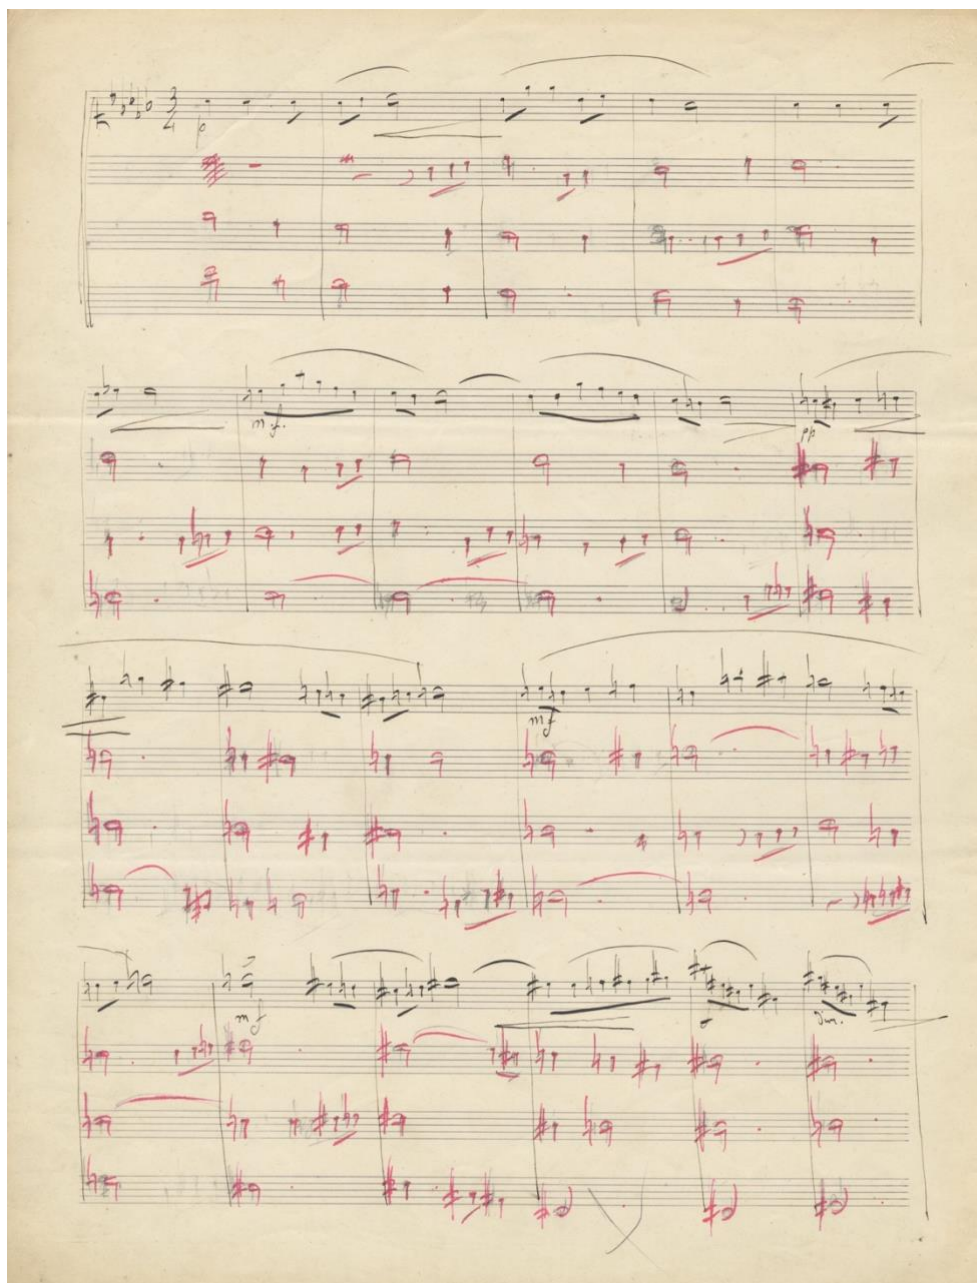 3
4
p
m.f.
pp
mf
mf
f
dim.